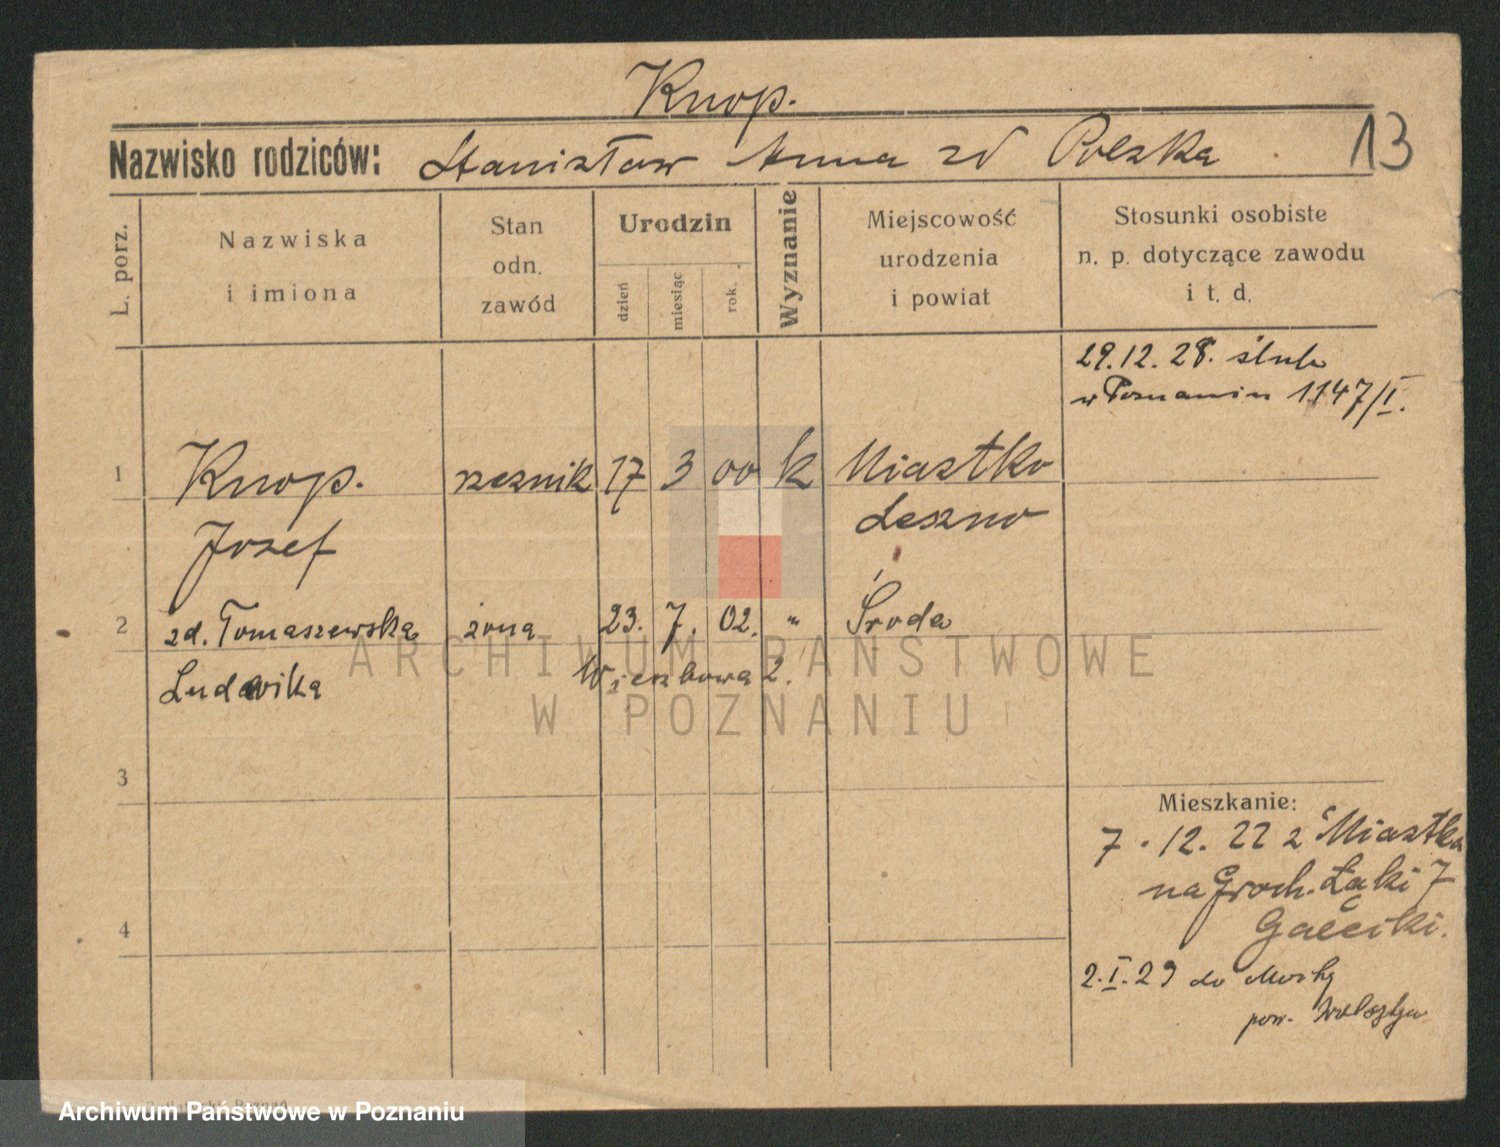 Knop.
Nazwisko rodziców: Stanisław Anna zd Polska 13
L. porz.
Nazwiska i imiona
Stan odn. zawód
Urodzin
dzień
miesiąc
rok.
Wyznanie
Miejscowość urodzenia i powiat
Stosunki osobiste n. p. dotyczące zawodu i t. d.
29.12.28. ślub
w Poznaniu 1147/I.
1 Knop. rzeznik 17 3 00 k Miastko
Jozef Leszno
2 zd. Tomaszewska żona 23. 7. 02. " Środa
Ludwika Wierzbowa 2.
3
Mieszkanie:
7.12.22 z Miastka
na Groch. Łąki 7
4
2.I.29 do Mochy
pow. Wolsztyn
ARCHIWUM PAŃSTWOWE
W POZNANIU
Archiwum Państwowe w Poznaniu